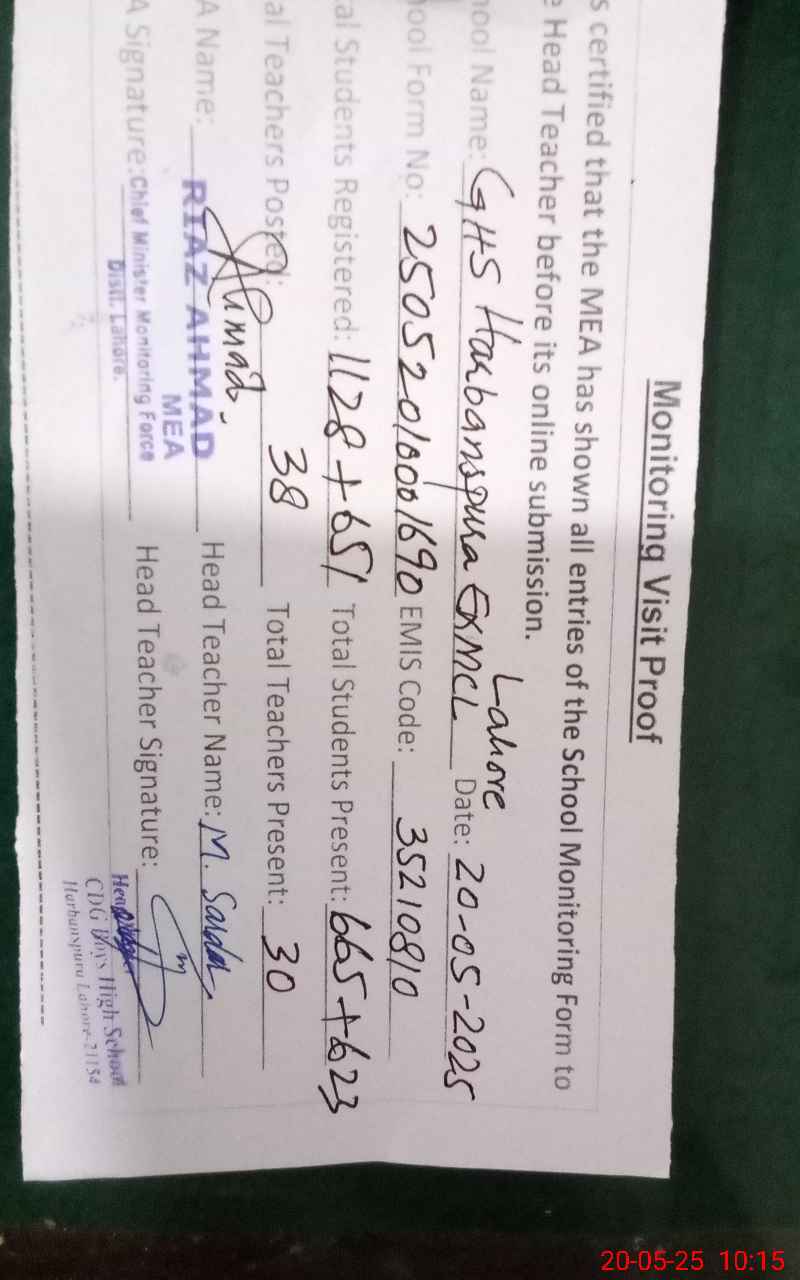 Monitoring Visit Proof
s certified that the MEA has shown all entries of the School Monitoring Form to
e Head Teacher before its online submission.
Lahore
ool Name: GHS Harbanspura Ex MCL Date: 20-05-2025
ool Form No: 250520160001690 EMIS Code: 35210810
al Students Registered: 1128 + 651 Total Students Present: 665 + 623
al Teachers Posted: 38 Total Teachers Present: 30
Ahmad
A Name: RIAZ AHMAD Head Teacher Name: M. Sardar
MEA
A Signature: Chief Minister Monitoring Force Head Teacher Signature:
Distt. Lahore.
Head
CDG Boys High School
Harbanspura Lahore-21154
20-05-25 10:15